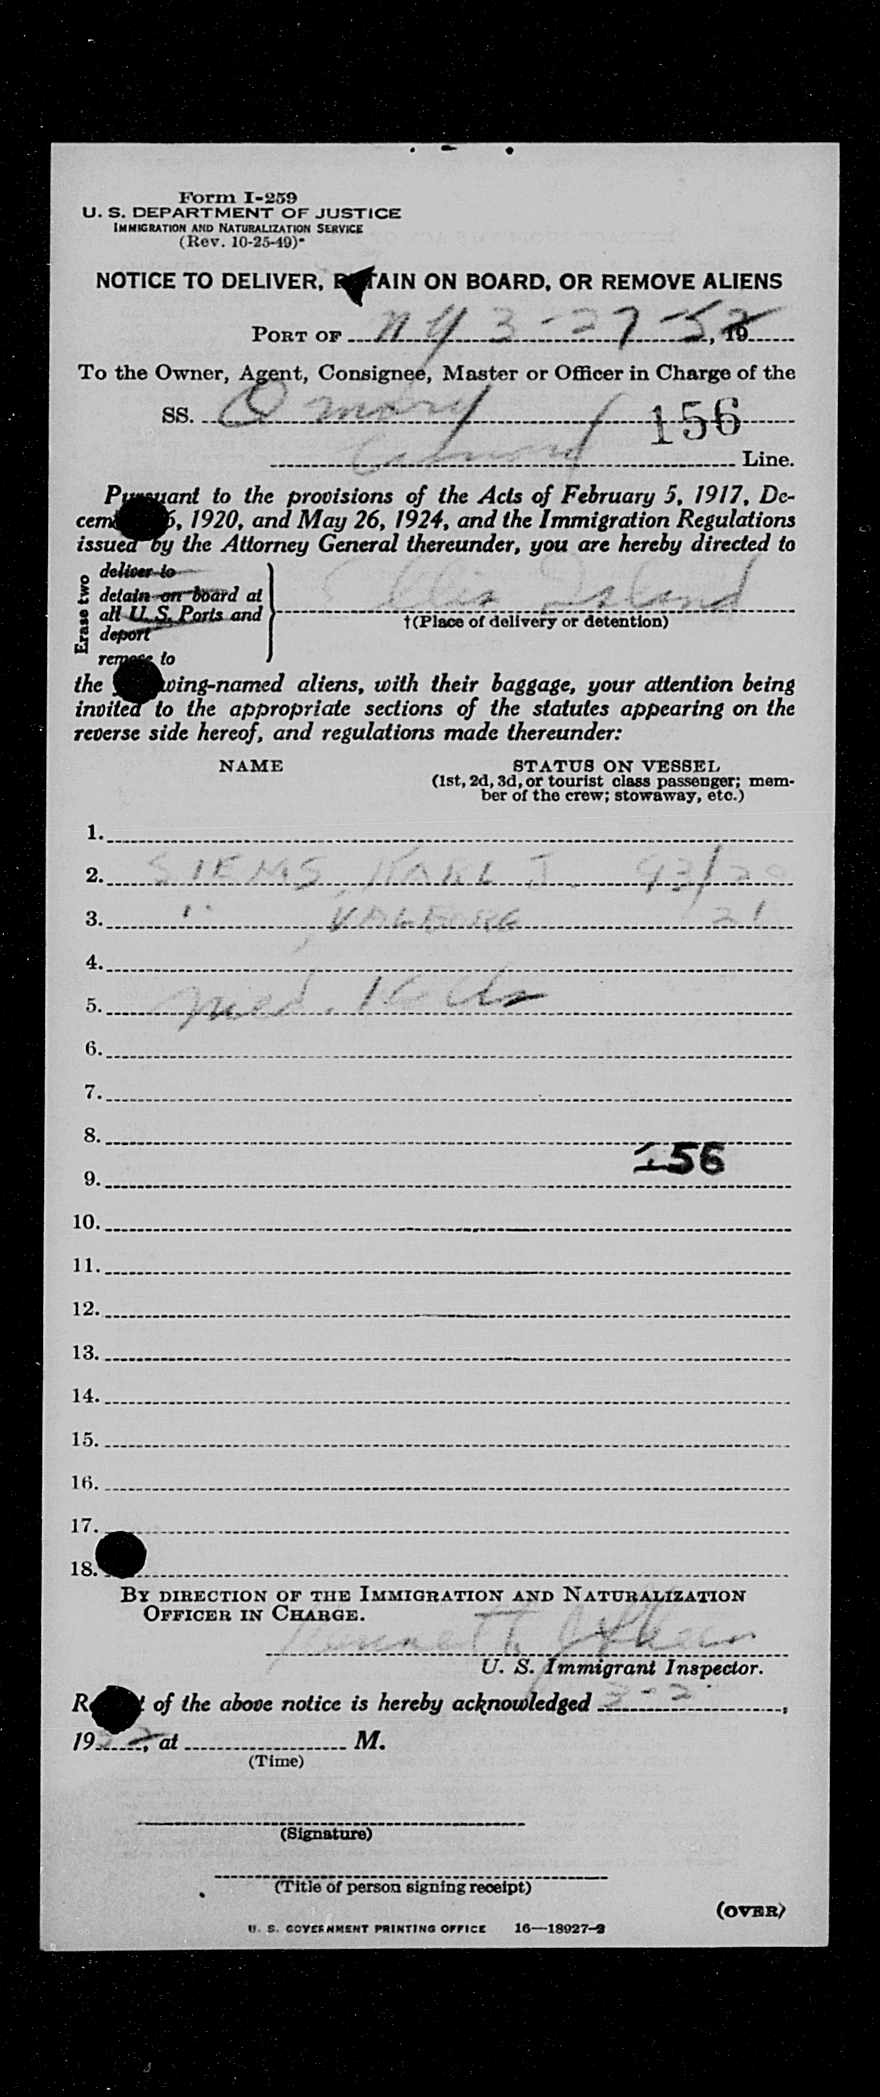 Form I-259
U. S. DEPARTMENT OF JUSTICE
IMMIGRATION AND NATURALIZATION SERVICE
(Rev. 10-25-49)
NOTICE TO DELIVER, TAIN ON BOARD, OR REMOVE ALIENS
PORT OF NY 3-27-52, 19
To the Owner, Agent, Consignee, Master or Officer in Charge of the
SS. Q Mary 156
Cunard Line.
Pursuant to the provisions of the Acts of February 5, 1917, De-
cem 5, 1920, and May 26, 1924, and the Immigration Regulations
issued by the Attorney General thereunder, you are hereby directed to
Erase two
deliver to
detain on board at
all U. S. Ports and
deport
remove to
Ellis Island
†(Place of delivery or detention)
the wing-named aliens, with their baggage, your attention being
invited to the appropriate sections of the statutes appearing on the
reverse side hereof, and regulations made thereunder:
NAME STATUS ON VESSEL
(1st, 2d, 3d, or tourist class passenger; mem-
ber of the crew; stowaway, etc.)
1.
2. SIEMS, KARL J. 93/20
3. " , VALBORG 21
4.
5. Med.
6.
7.
8.
156
9.
10.
11.
12.
13.
14.
15.
16.
17.
18.
BY DIRECTION OF THE IMMIGRATION AND NATURALIZATION
OFFICER IN CHARGE.
Kenneth
U. S. Immigrant Inspector.
R t of the above notice is hereby acknowledged 3-2 ,
1952, at M.
(Time)
(Signature)
(Title of person signing receipt)
(OVER)
U. S. GOVERNMENT PRINTING OFFICE 16—18927-2